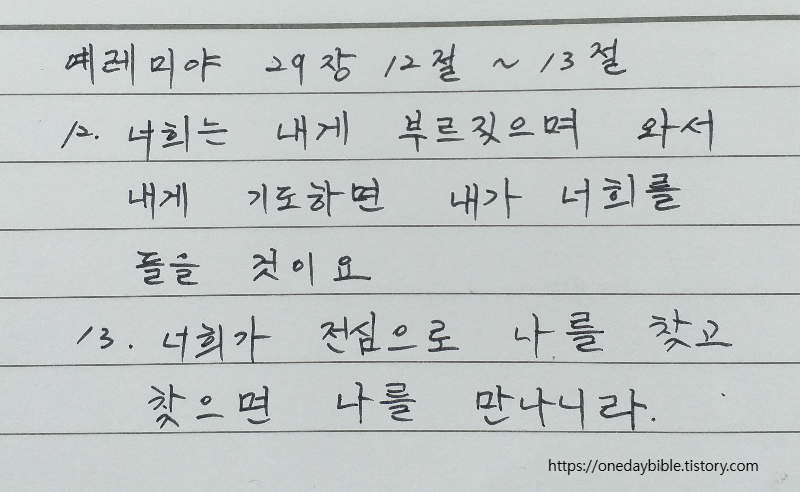 예레미야 29장 12절 ~ 13절
12. 너희는 내게 부르짖으며 와서
내게 기도하면 내가 너희를
들을 것이요
13. 너희가 전심으로 나를 찾고
찾으면 나를 만나니라.
https://onedaybible.tistory.com